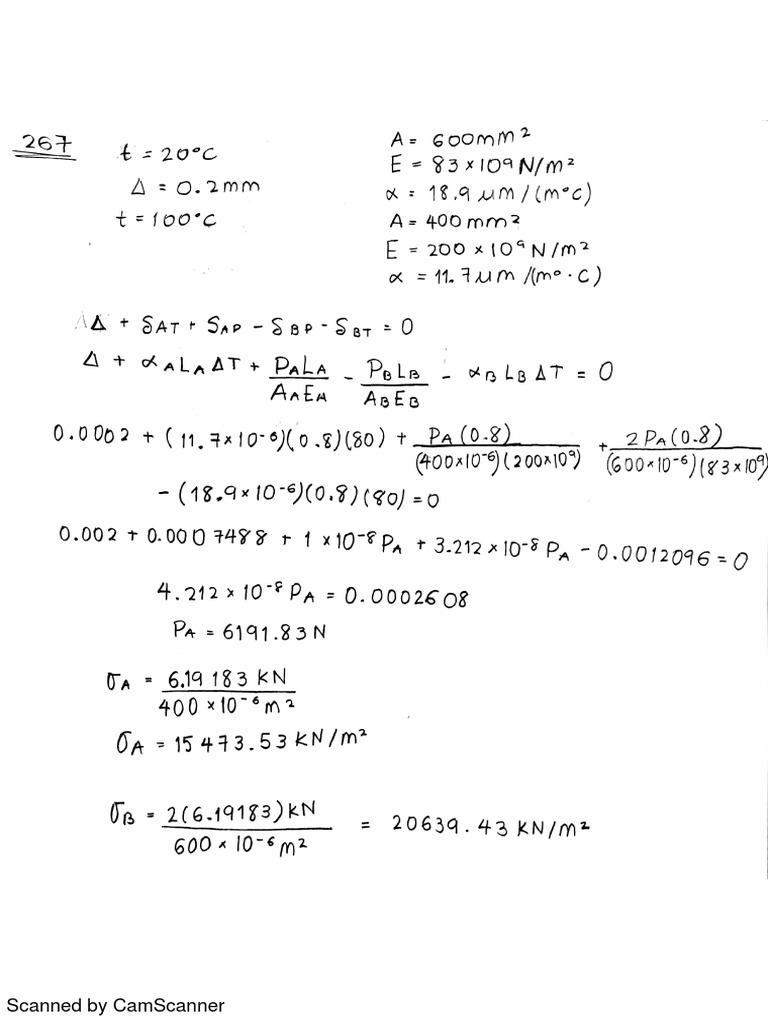 267
t = 20°C
Δ = 0.2mm
t = 100°C
A = 600mm²
E = 83 × 10⁹ N/m²
α = 18.9 μm/(m°C)
A = 400 mm²
E = 200 × 10⁹ N/m²
α = 11.7 μm/(m° · C)
Δ + δAT + δAP - δBP - δBT = 0
Δ + αALAΔT + PALA/AAEA - PBLB/ABEB - αBLBΔT = 0
0.0002 + (11.7×10⁻⁶)(0.8)(80) + PA(0.8)/(400×10⁻⁶)(200×10⁹) + 2PA(0.8)/(600×10⁻⁶)(83×10⁹)
- (18.9×10⁻⁶)(0.8)(80) = 0
0.002 + 0.0007488 + 1 × 10⁻⁸ PA + 3.212 × 10⁻⁸ PA - 0.0012096 = 0
4.212 × 10⁻⁸ PA = 0.0002608
PA = 6191.83 N
σA = 6.19183 KN/400 × 10⁻⁶ m²
σA = 15473.53 KN/m²
σB = 2(6.19183)KN/600 × 10⁻⁶ m² = 20639.43 KN/m²
Scanned by CamScanner